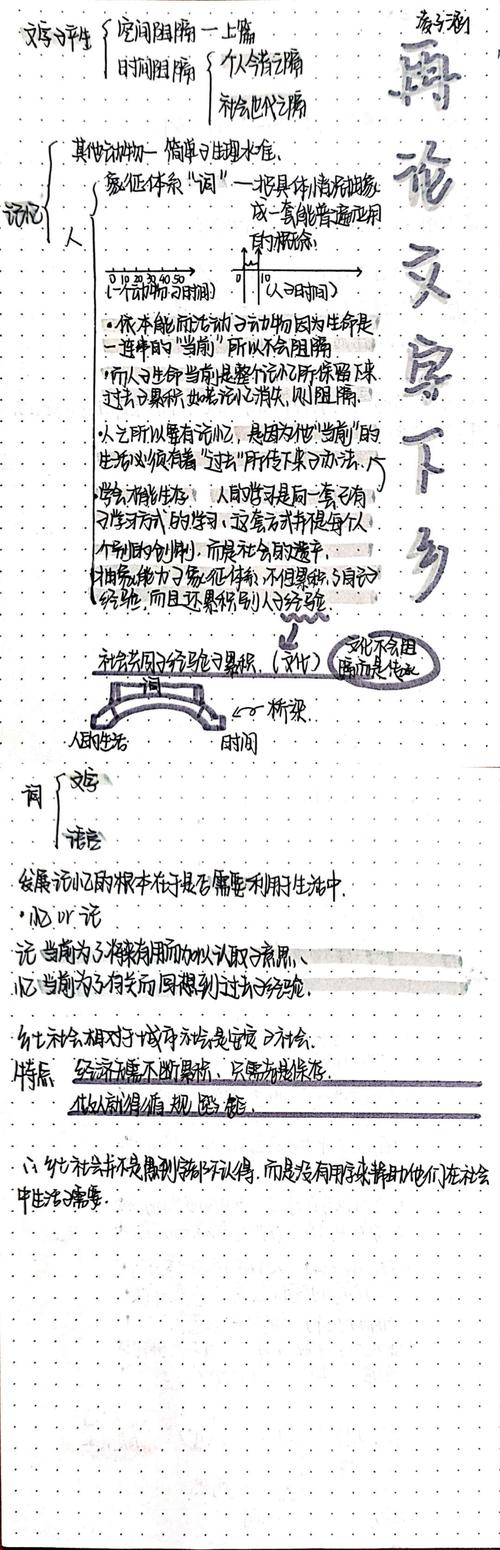 再论文字下乡
文字之产生
空间阻隔—上篇
时间阻隔
个人今昔之隔
社会世代之隔
记忆
其他动物—简单之生理水准.
人
象征体系“词”—把具体情况抽象
成一套能普遍应用
的概念.
0 10 20 30 40 50
(一个动物之时间)
0 10
(人之时间)
·依本能而活动之动物因为生命是
一连串的“当前”所以不会阻隔
·而人之生命当前是整个记忆所保留下来
过去之累积.如若记忆消失,则阻隔.
·人之所以要有记忆,是因为他“当前”的
生活必须有着“过去”所传下来之办法.
·学会才能生存 人的学习是向一套已有
之学习方式的学习.这套方式并不是每个人
个别的创制,而是社会的遗产.
抽象能力之象征体系,不但累积了自己之
经验,而且还累积别人之经验.
社会共同之经验之累积.(文化)
文化不会阻
隔而是传承
词
桥梁.
人的生活
时间
词
文字
语言
发展记忆的根本在于是否需要利用于生活中.
·忆 or 记
记 当前为了将来有用而加以认取之意思、
忆 当前为了有关而回想到过去之经验.
乡土社会相对于城市社会是安定之社会.
特点
经济无需不断累积、只需尤是保存.
做人就得循规蹈矩.
∴乡土社会并不是愚到字都不认得,而是没有用字来帮助他们在社会
中生活之需要.